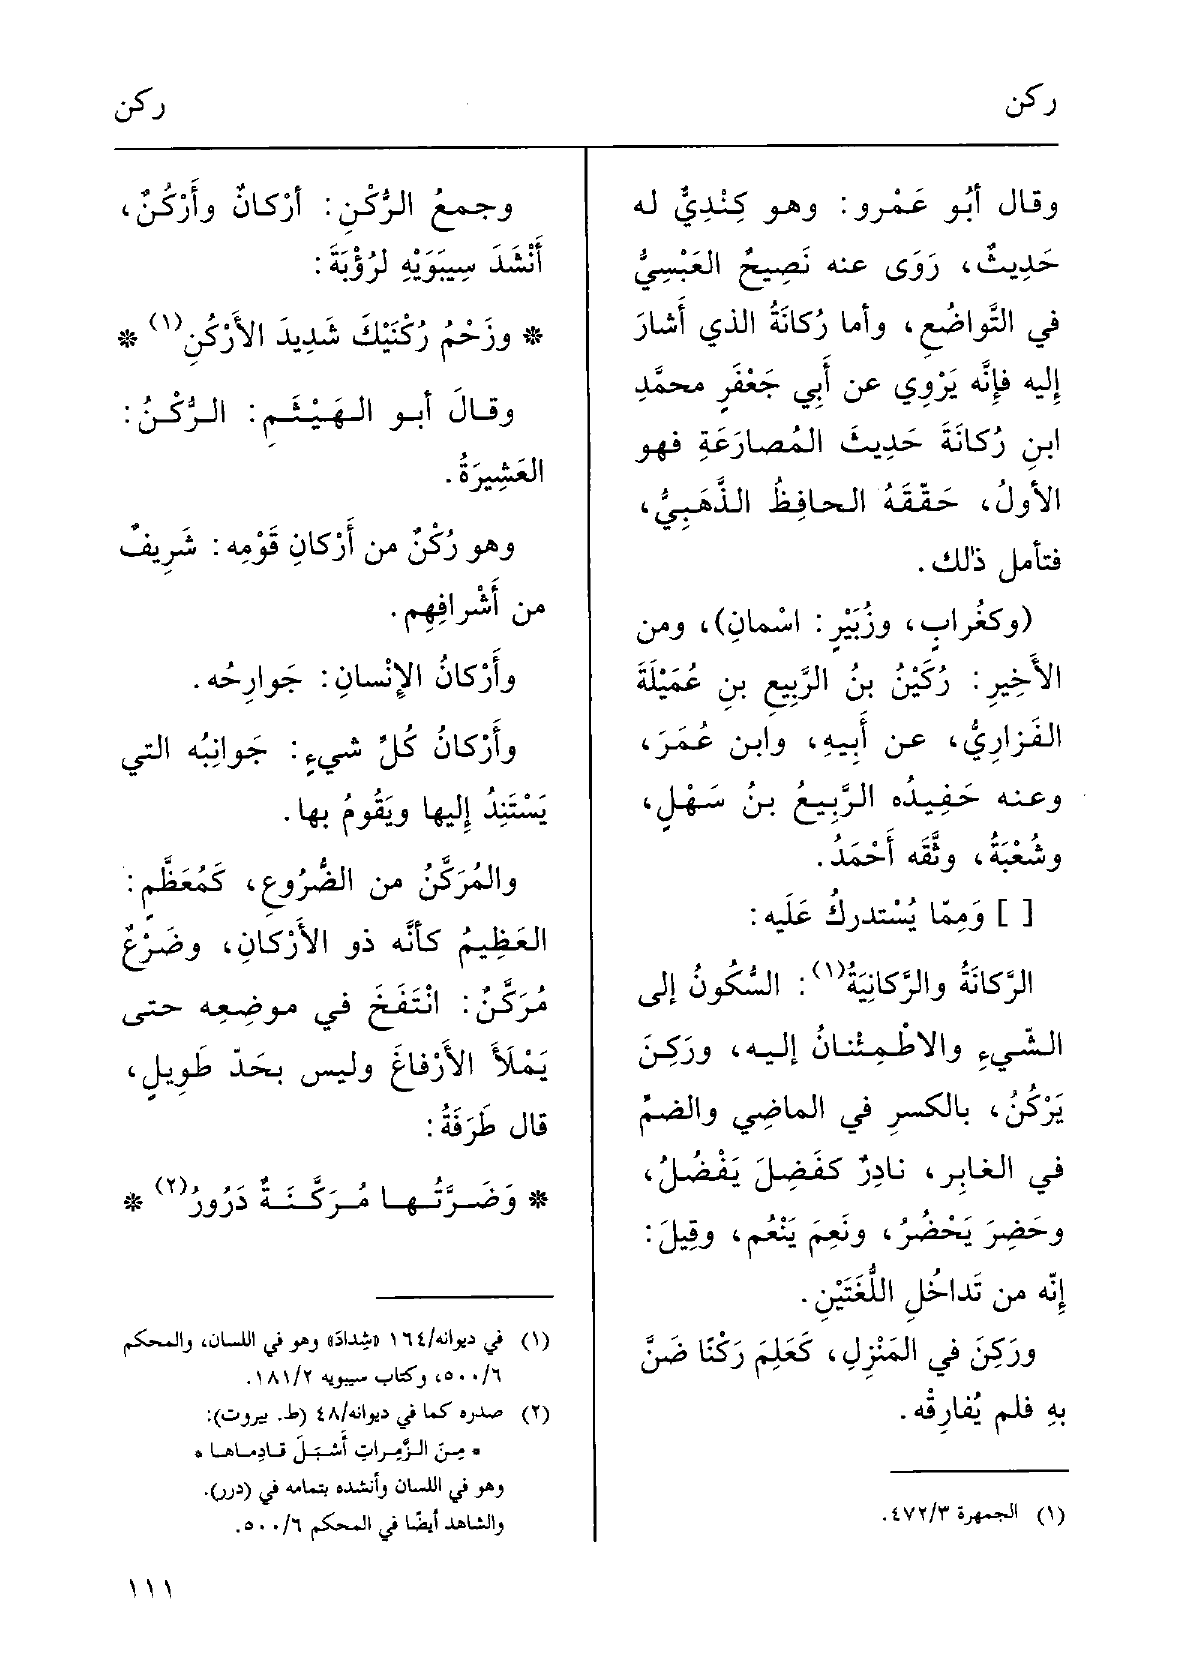 ركن
ركن
وقال أبُو عَمْرو: وهو كِنْدِيٌّ له
حَدِيثٌ، رَوَى عنه نَصِيحٌ العَبْسِيُّ
في التَّواضُعِ، وأما رُكانَةُ الذي أَشارَ
إليه فإنَّه يَرْوِي عن أَبِي جَعْفَرٍ محمَّدِ
ابنِ رُكانَةَ حَدِيثَ المُصارَعَةِ فهو
الأولُ، حَقّقَهُ الحافِظُ الذَّهَبِيُّ،
فتأمل ذلك.
(وكغُرابٍ، وزُبَيْرٍ: اسْمانِ)، ومن
الأَخِيرِ: رُكَيْنُ بنُ الرَّبِيعِ بنِ عُمَيْلَةَ
الفَزارِيُّ، عن أَبِيهِ، وابن عُمَرَ،
وعنه حَفِيدُه الرَّبِيعُ بنُ سَهْلٍ،
وشُعْبَةُ، وثَّقَه أَحْمَدُ.
[ ] وَمِمّا يُسْتدركُ عَلَيه:
الرَّكانَةُ والرَّكانِيَةُ(١): السُّكُونُ إلى
الشّيءِ والاطْمِئنانُ إليه، ورَكِنَ
يَرْكُنُ، بالكسرِ في الماضِي والضمِّ
في الغابِرِ، نادِرٌ كفَضِلَ يَفْضُلُ،
وحَضِرَ يَحْضُرُ، ونَعِمَ يَنْعُم، وقِيلَ:
إنّه من تَداخُلِ اللُّغَتَيْنِ.
ورَكِنَ في المَنْزِلِ، كَعَلِمَ رَكْنًا ضَنَّ
بهِ فلم يُفارِقْه.
(١) الجمهرة ٤٧٢/٣.
وجمعُ الرُّكْنِ: أرْكانٌ وأَرْكُنٌ،
أَنْشَدَ سِيبَوَيْهِ لرُؤْبَةَ:
* وزَحْمُ رُكْنَيْكَ شَدِيدَ الأَرْكُنِ(١) *
وقالَ أبو الهَيْثَمِ: الرُّكْنُ:
العَشِيرَةُ.
وهو رُكْنٌ من أَرْكانِ قَوْمِه: شَرِيفٌ
من أَشْرافِهِم.
وأَرْكانُ الإنْسانِ: جَوارِحُه.
وأَرْكانُ كُلِّ شيءٍ: جَوانِبُه التي
يَسْتَنِدُ إليها ويَقُومُ بها.
والمُرَكَّنُ من الضُّرُوعِ، كَمُعَظَّمٍ:
العَظِيمُ كأنَّه ذو الأَرْكانِ، وضَرْعٌ
مُرَكَّنٌ: انْتَفَخَ في موضِعِه حتى
يَمْلَأَ الأَرْفاغَ وليس بحَدّ طَوِيلٍ،
قال طَرَفَةُ:
* وَضَرَّتُها مُرَكَّنَةٌ دَرُورُ(٢) *
(١) في ديوانه/١٦٤ «شِدادَ» وهو في اللسان، والمحكم
٥٠٠/٦، وكتاب سيبويه ١٨١/٢.
(٢) صدره كما في ديوانه/٤٨ (ط. بيروت):
* مِنَ الزَّمِراتِ أَسْبَلَ قادِماها *
وهو في اللسان وأنشده بتمامه في (درر).
والشاهد أيضًا في المحكم ٥٠٠/٦.
١١١